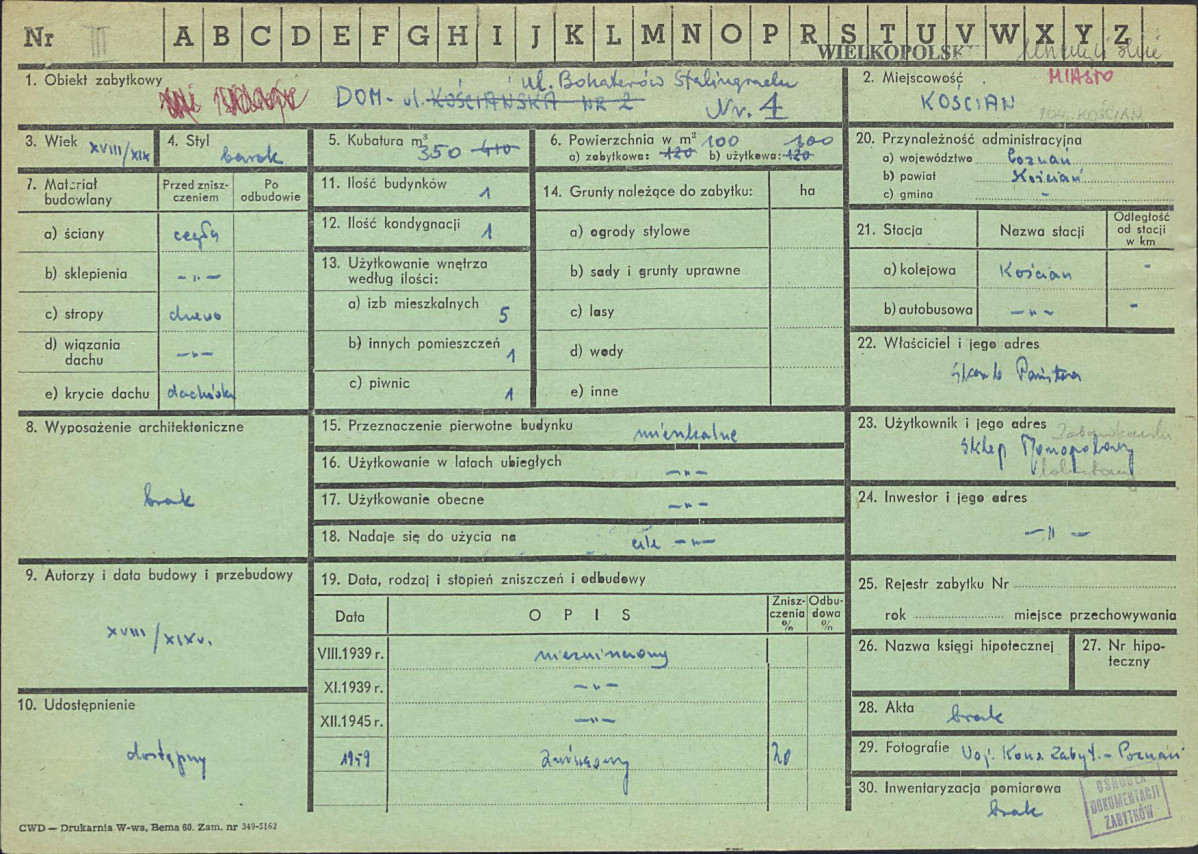 Nr III A B C D E F G H I J K L M N O P R S T U V W X Y Z
WIELKOPOLSK
1. Obiekt zabytkowy
DOM - ul. KOŚCIAŃSKA NR 2 ul. Bohaterów Stalingradu
Nr. 4
2. Miejscowość
MIASTO
KOŚCIAN
POW. KOŚCIAN
3. Wiek XVIII/XIX
4. Styl barok
5. Kubatura m³ 350 410
6. Powierzchnia w m² 100 100
a) zabytkowa: 120 b) użytkowa: 120
20. Przynależność administracyjna
a) województwo Poznań
b) powiat Kościan
c) gmina -
7. Materiał budowlany
Przed zniszczeniem
Po odbudowie
a) ściany cegła
b) sklepienia -"-
c) stropy drewno
d) wiązania dachu -"-
e) krycie dachu dachówka
11. Ilość budynków 1
12. Ilość kondygnacji 1
13. Użytkowanie wnętrza według ilości:
a) izb mieszkalnych 5
b) innych pomieszczeń 1
c) piwnic 1
14. Grunty należące do zabytku: ha
a) ogrody stylowe
b) sady i grunty uprawne
c) lasy
d) wody
e) inne
21. Stacja Nazwa stacji Odległość od stacji w km
a) kolejowa Kościan -
b) autobusowa -"- -
22. Właściciel i jego adres
Skarb Państwa
8. Wyposażenie architektoniczne
brak
15. Przeznaczenie pierwotne budynku mieszkalne
16. Użytkowanie w latach ubiegłych -"-
17. Użytkowanie obecne -"-
18. Nadaje się do użycia na cele -"-
23. Użytkownik i jego adres
Sklep Monopolowy
24. Inwestor i jego adres
-"-
9. Autorzy i data budowy i przebudowy
XVIII/XIX w.
19. Data, rodzaj i stopień zniszczeń i odbudowy
Data OPIS Zniszczenia % Odbudowa %
VIII.1939 r. niezniszczony
XI.1939 r. -"-
XII.1945 r. -"-
1959 20
25. Rejestr zabytku Nr
rok miejsce przechowywania
26. Nazwa księgi hipotecznej
27. Nr hipoteczny
10. Udostępnienie
dostępny
28. Akta brak
29. Fotografie Woj. Kons. Zabyt. - Poznań
30. Inwentaryzacja pomiarowa
brak
OŚRODEK
DOKUMENTACJI
ZABYTKÓW
CWD — Drukarnia W-wa, Bema 60. Zam. nr 349-5162